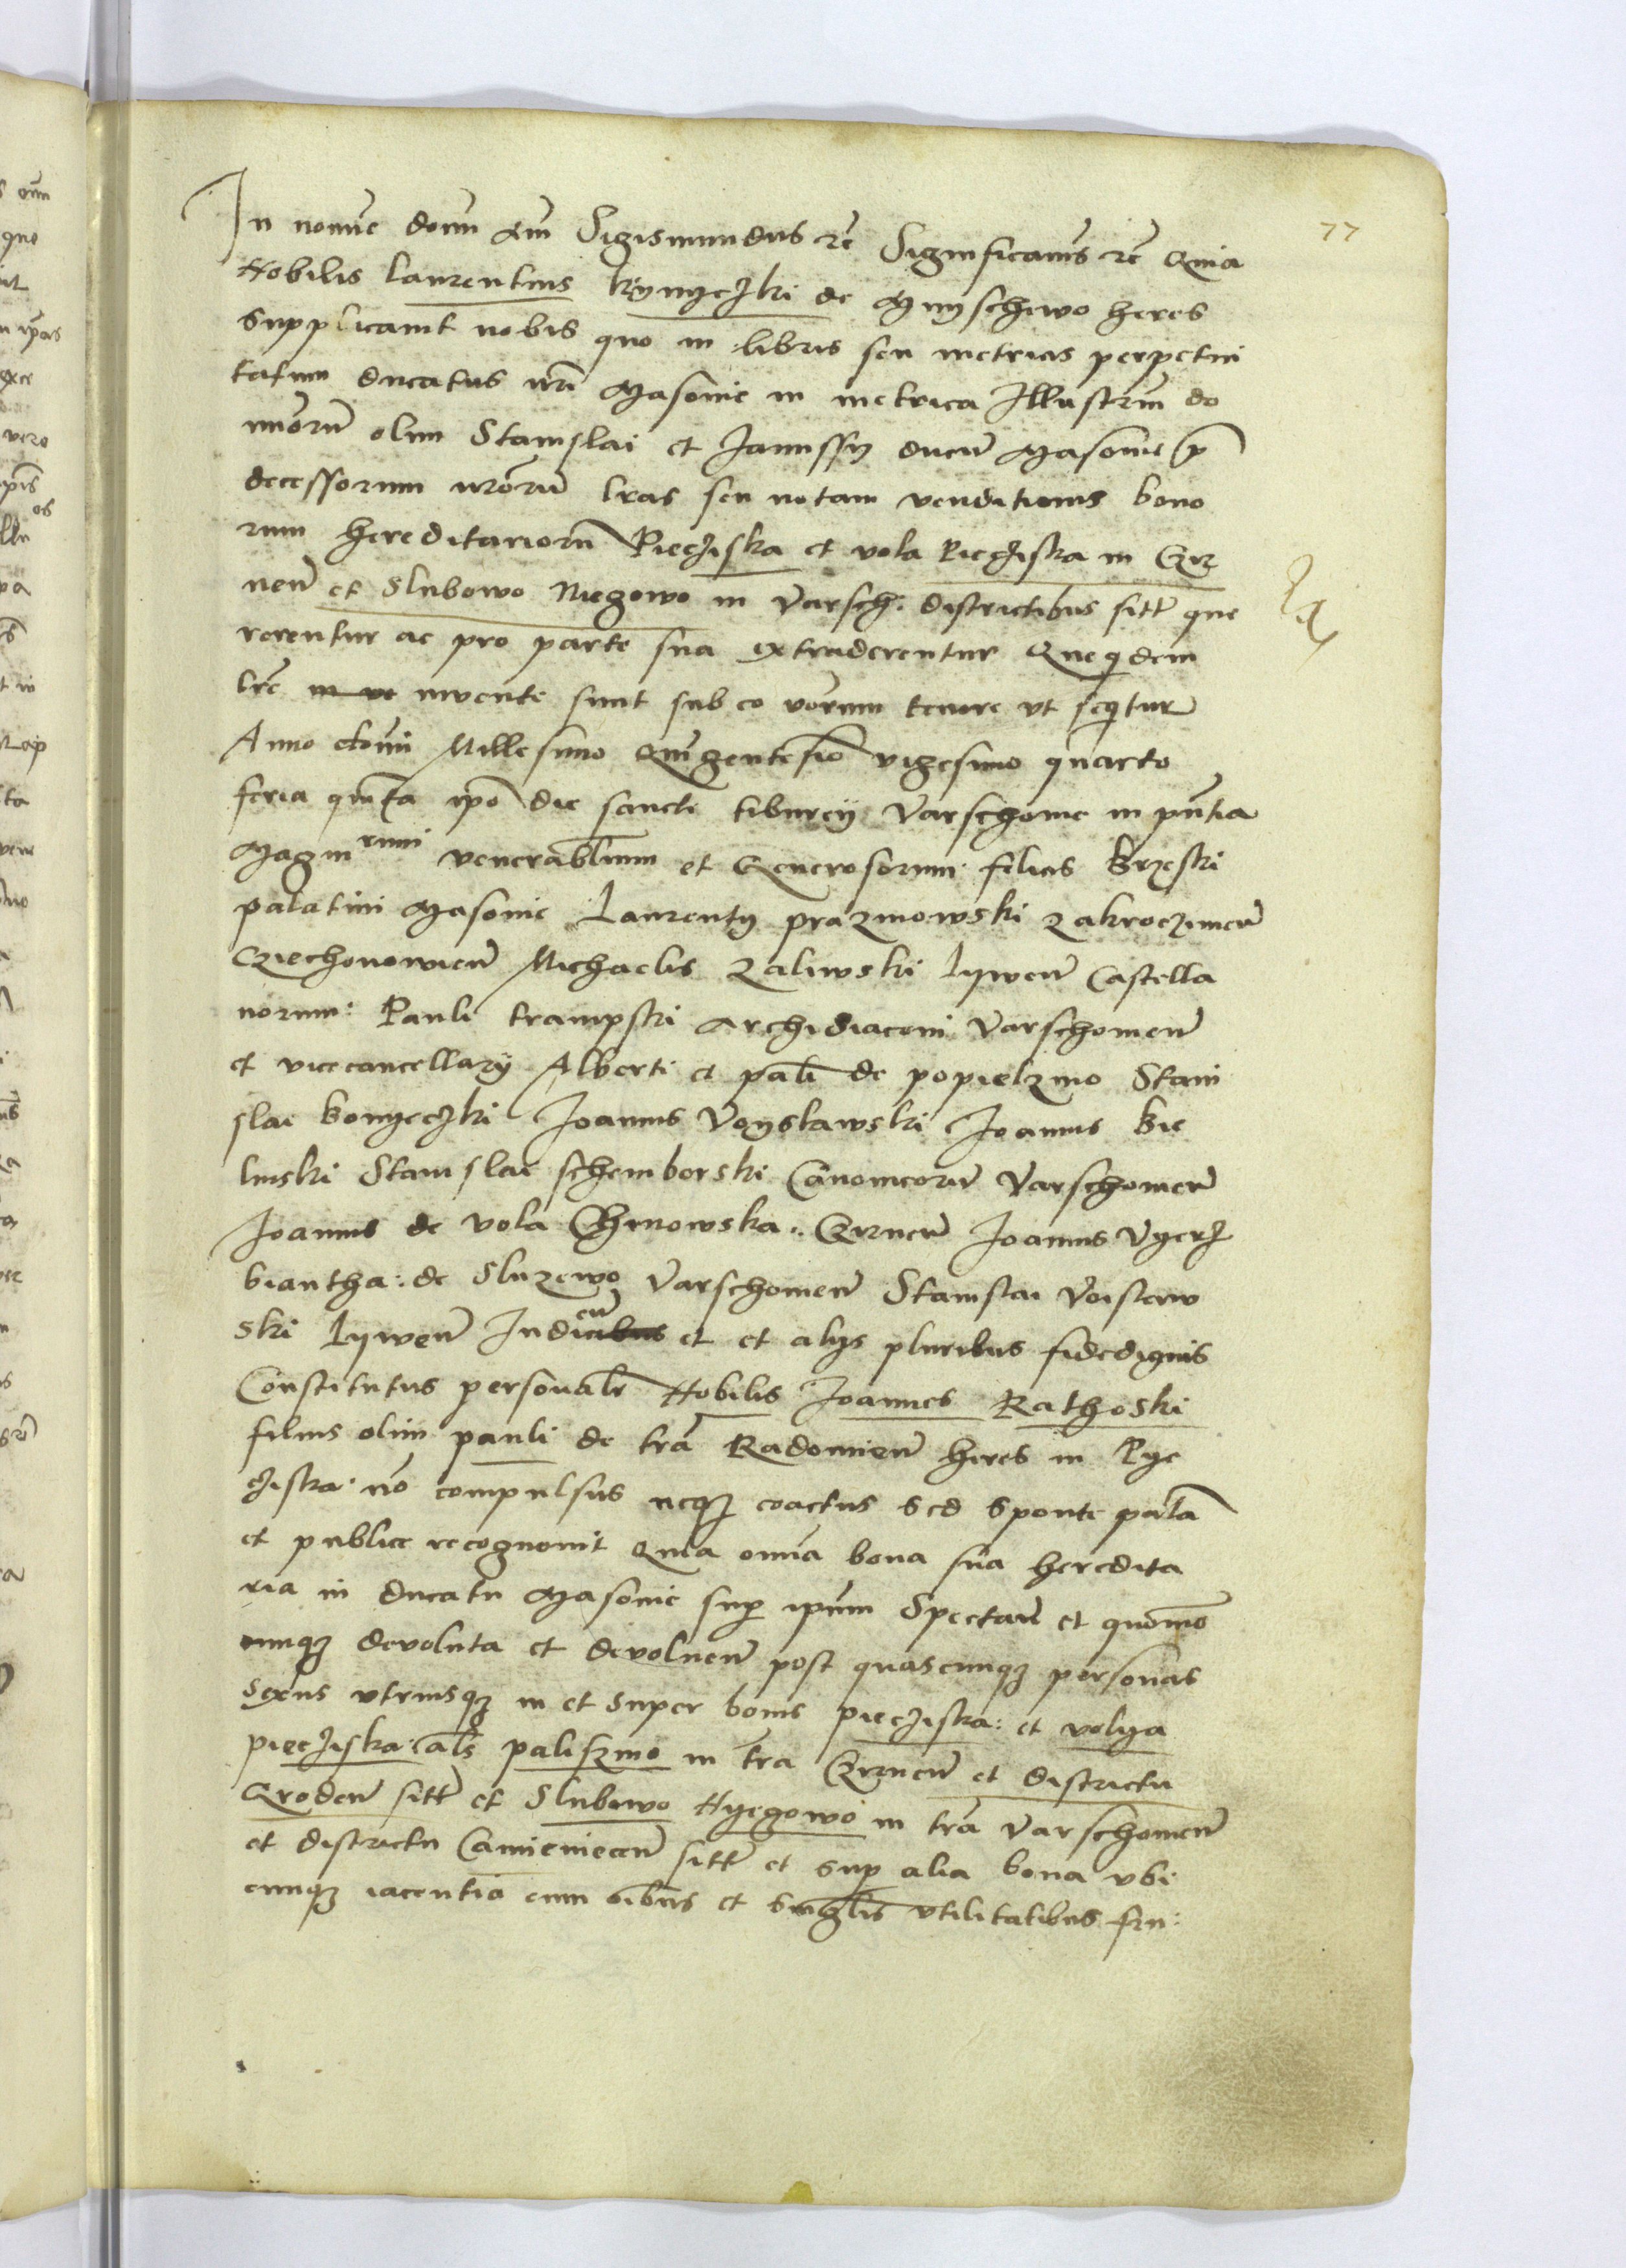 77
In nomine domini Am Sigismundus rc Significamus rc Quia
Nobilis Laurentius de Mnyschewo heres
Supplicavit nobis quo in libris seu metricis perpetui
tatum ducatus nri Masovie in metrica Illustrium do
minorum olim Stanislai et Janussy ducum Masovie p
decessorum nrorum lras seu notam venditionis bono
rum hereditariorum Piecziska et vola Piecziska in Czr
nen et Slubowo Niegowo in Varsch. districtibus sitt que
rerentur ac pro parte sua extraderentur Quequidem
lre invente sunt sub eo verum tenore vt sequitur
Anno domini Millesimo Quingentesimo vigesimo quarto
feria quinta ipo die sancti tiburcy Varschovie in pntia
Magnicorum venerabilium et Generosorum felicis Brzeski
palatini Masovie Laurenty prazmowski zakroczimen
Cziechonowien Michaelis zaliwski Lywen Castella
norum: Pauli trampski Archidiaconi Varschovien
et vicecancellary Alberti et pauli de popielzino Stani
slai Joannis Voyslawski Joannis Bie
linski Stanislai schemborski Canonicorum Varschovien
Joannis de vola Chinowska: Czrnen Joannis Vyerz
biantha: de Sluzewo Varschovien Stanislai Voislaw
ski Lywen Judicum et et alys pluribus fidedignis
Constitutus personalr Nobilis Joannes Rathoski
filius olim pauli de tra Radomien heres in Pye
cziska: no compulsus neqz coactus sed sponte palam
et publice recognovit Quia omnia bona sua heredita
ria in ducatu Masovie sup ipum Spectan et quomo
cunqz devoluta et devoluen post quascunqz personas
Sexus vtriusqz in et super bonis piecziska: et volya
pieczиska: als paliszmo in tra Czrnen et districtu
Groden sitt et Slubowo Nyegowo in tra Varschovien
et districtu Camieniecen sitt et sup alia bona vbi
cunqz iacentia cum oibus et singlis vtilitatibus fru: